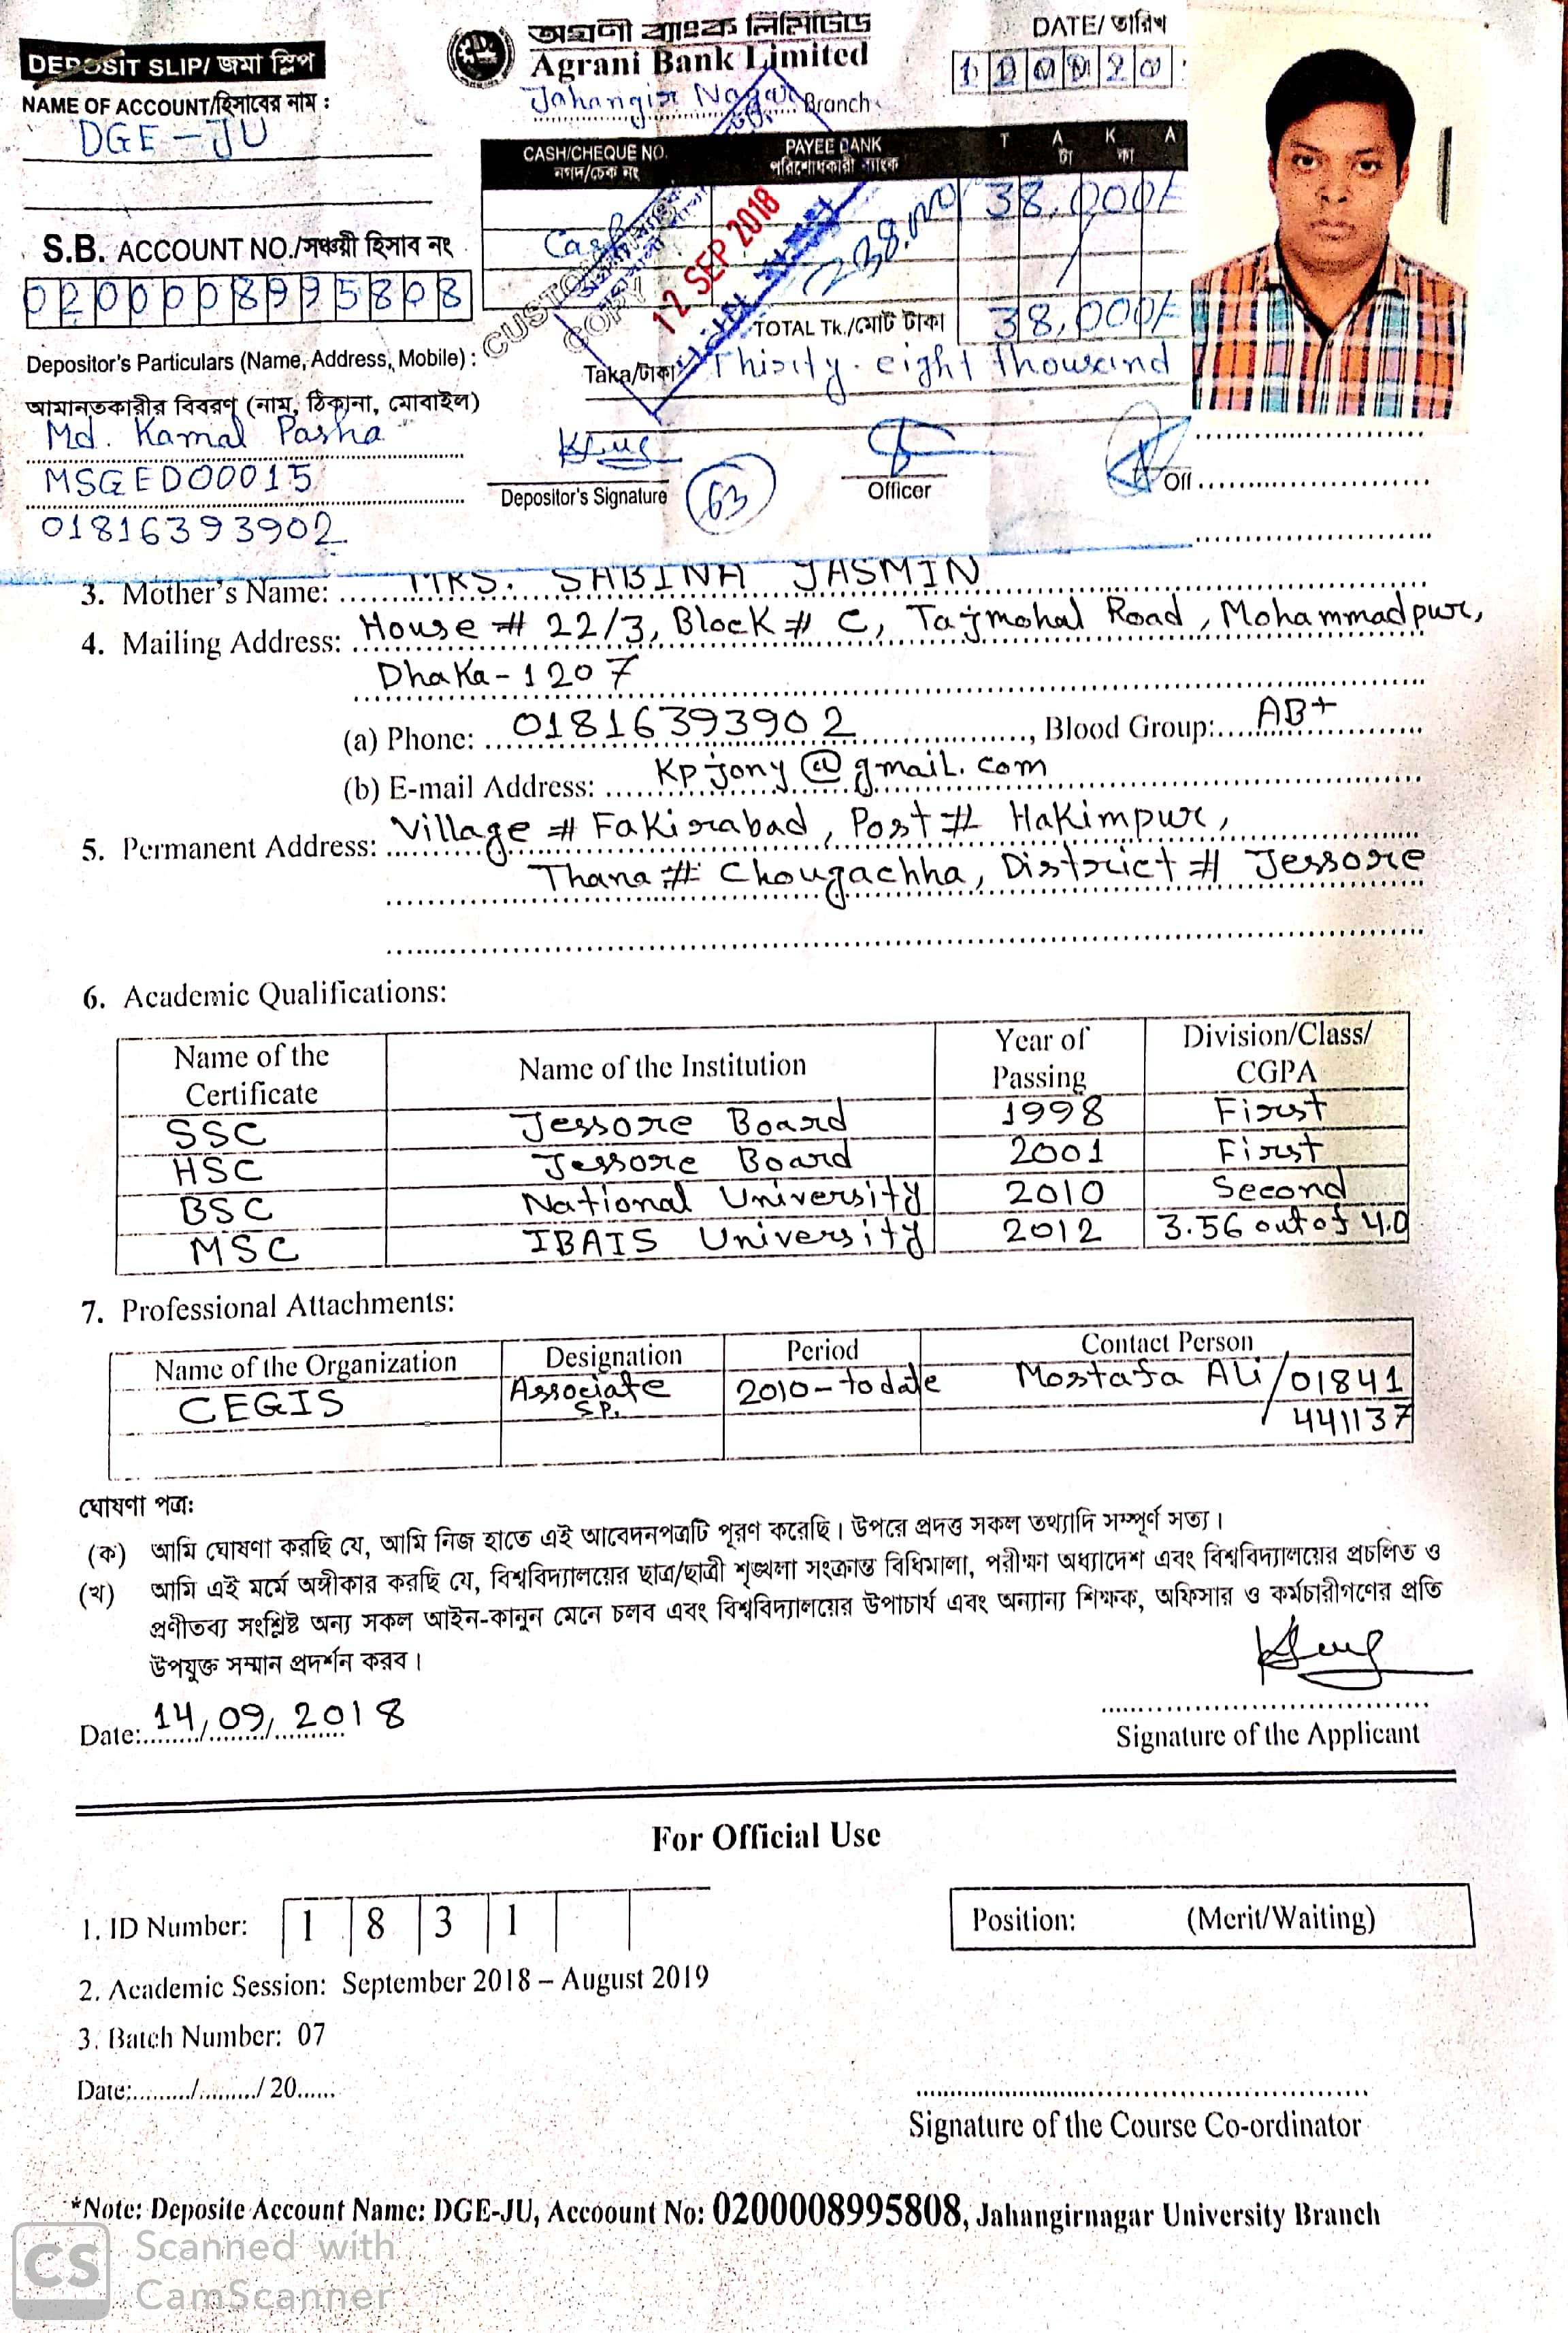 DEPOSIT SLIP/ জমা স্লিপ
অগ্রণী ব্যাংক লিমিটেড
Agrani Bank Limited
Jahangir Nagar Branch
DATE/ তারিখ
NAME OF ACCOUNT/হিসাবের নাম :
DGE-JU
CASH/CHEQUE NO.
নগদ/চেক নং
PAYEE BANK
পরিশোধকারী ব্যাংক
T A K A
টা কা
Cash
38,000/-
12 SEP 2018
CUSTOMER COPY
S.B. ACCOUNT NO./সঞ্চয়ী হিসাব নং
0200008995808
TOTAL Tk./মোট টাকা
38,000/-
Depositor's Particulars (Name, Address, Mobile) :
Taka/টাকা Thirty eight thousand
আমানতকারীর বিবরণ (নাম, ঠিকানা, মোবাইল)
Md. Kamal Pasha
MSGED00015
01816393902
Depositor's Signature
63
Officer
3. Mother's Name: MRS. SABINA JASMIN
4. Mailing Address: House # 22/3, Block # C, Tajmohal Road, Mohammadpur,
Dhaka-1207
(a) Phone: 01816393902, Blood Group: AB+
(b) E-mail Address: Kpjony@gmail.com
5. Permanent Address: Village # Fakirabad, Post # Hakimpur,
Thana # Chougachha, District # Jessore
6. Academic Qualifications:
Name of the Certificate Name of the Institution Year of Passing Division/Class/ CGPA
SSC Jessore Board 1998 First
HSC Jessore Board 2001 First
BSC National University 2010 Second
MSC IBAIS University 2012 3.56 out of 4.0
7. Professional Attachments:
Name of the Organization Designation Period Contact Person
CEGIS Associate S.P. 2010-to date Mostafa Ali/01841
441137
ঘোষণা পত্র:
(ক) আমি ঘোষণা করছি যে, আমি নিজ হাতে এই আবেদনপত্রটি পূরণ করেছি। উপরে প্রদত্ত সকল তথ্যাদি সম্পূর্ণ সত্য।
(খ) আমি এই মর্মে অঙ্গীকার করছি যে, বিশ্ববিদ্যালয়ের ছাত্র/ছাত্রী শৃঙ্খলা সংক্রান্ত বিধিমালা, পরীক্ষা অধ্যাদেশ এবং বিশ্ববিদ্যালয়ের প্রচলিত ও
প্রণীতব্য সংশ্লিষ্ট অন্য সকল আইন-কানুন মেনে চলব এবং বিশ্ববিদ্যালয়ের উপাচার্য এবং অন্যান্য শিক্ষক, অফিসার ও কর্মচারীগণের প্রতি
উপযুক্ত সম্মান প্রদর্শন করব।
Date: 14/09/2018
Signature of the Applicant
For Official Use
1. ID Number: 1 8 3 1
Position: (Merit/Waiting)
2. Academic Session: September 2018 – August 2019
3. Batch Number: 07
Date:........./........./ 20......
Signature of the Course Co-ordinator
*Note: Deposite Account Name: DGE-JU, Accoount No: 0200008995808, Jahangirnagar University Branch
CS Scanned with
CamScanner